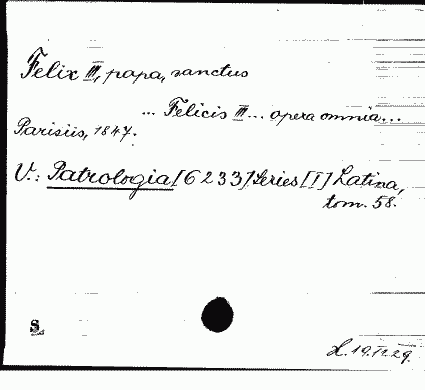 Felix III, papa, sanctus
... Felicis III ... opera omnia...
Parisiis, 1847.
V.: Patrologia [6233] Series [I] Latina,
tom. 58.
S.